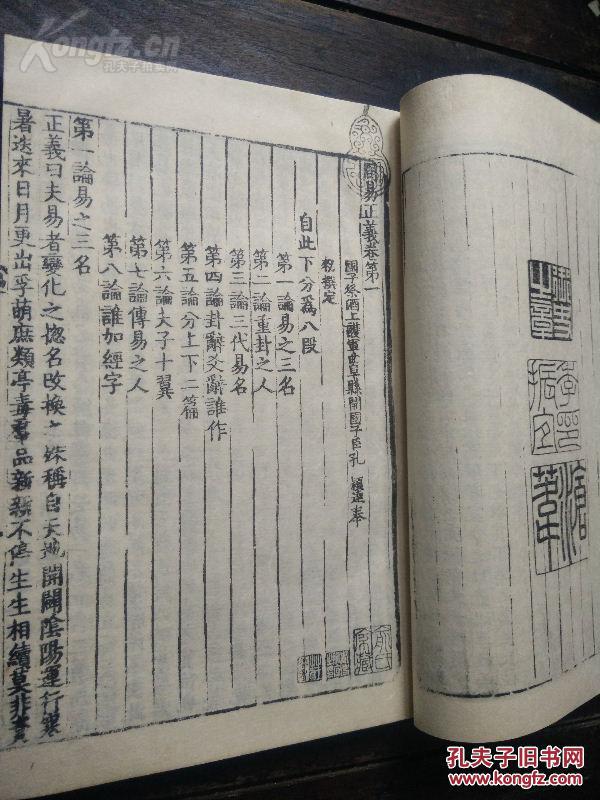 Kongfz.cn
孔夫子旧书网
周易正義卷第一
國子祭酒上護軍曲阜縣開國子臣孔 穎達奉
敕撰定
自此下分爲八段
第一論易之三名
第二論重卦之人
第三論三代易名
第四論卦辭爻辭誰作
第五論分上下二篇
第六論夫子十翼
第七論傳易之人
第八論誰加經字
第一論易之三名
正義曰夫易者變化之揔名改換之殊稱自天地開闢陰陽運行寒
暑迭來日月更出孚萌庶類亭毒羣品新新不停生生相續莫非資
孔夫子旧书网
www.kongfz.com